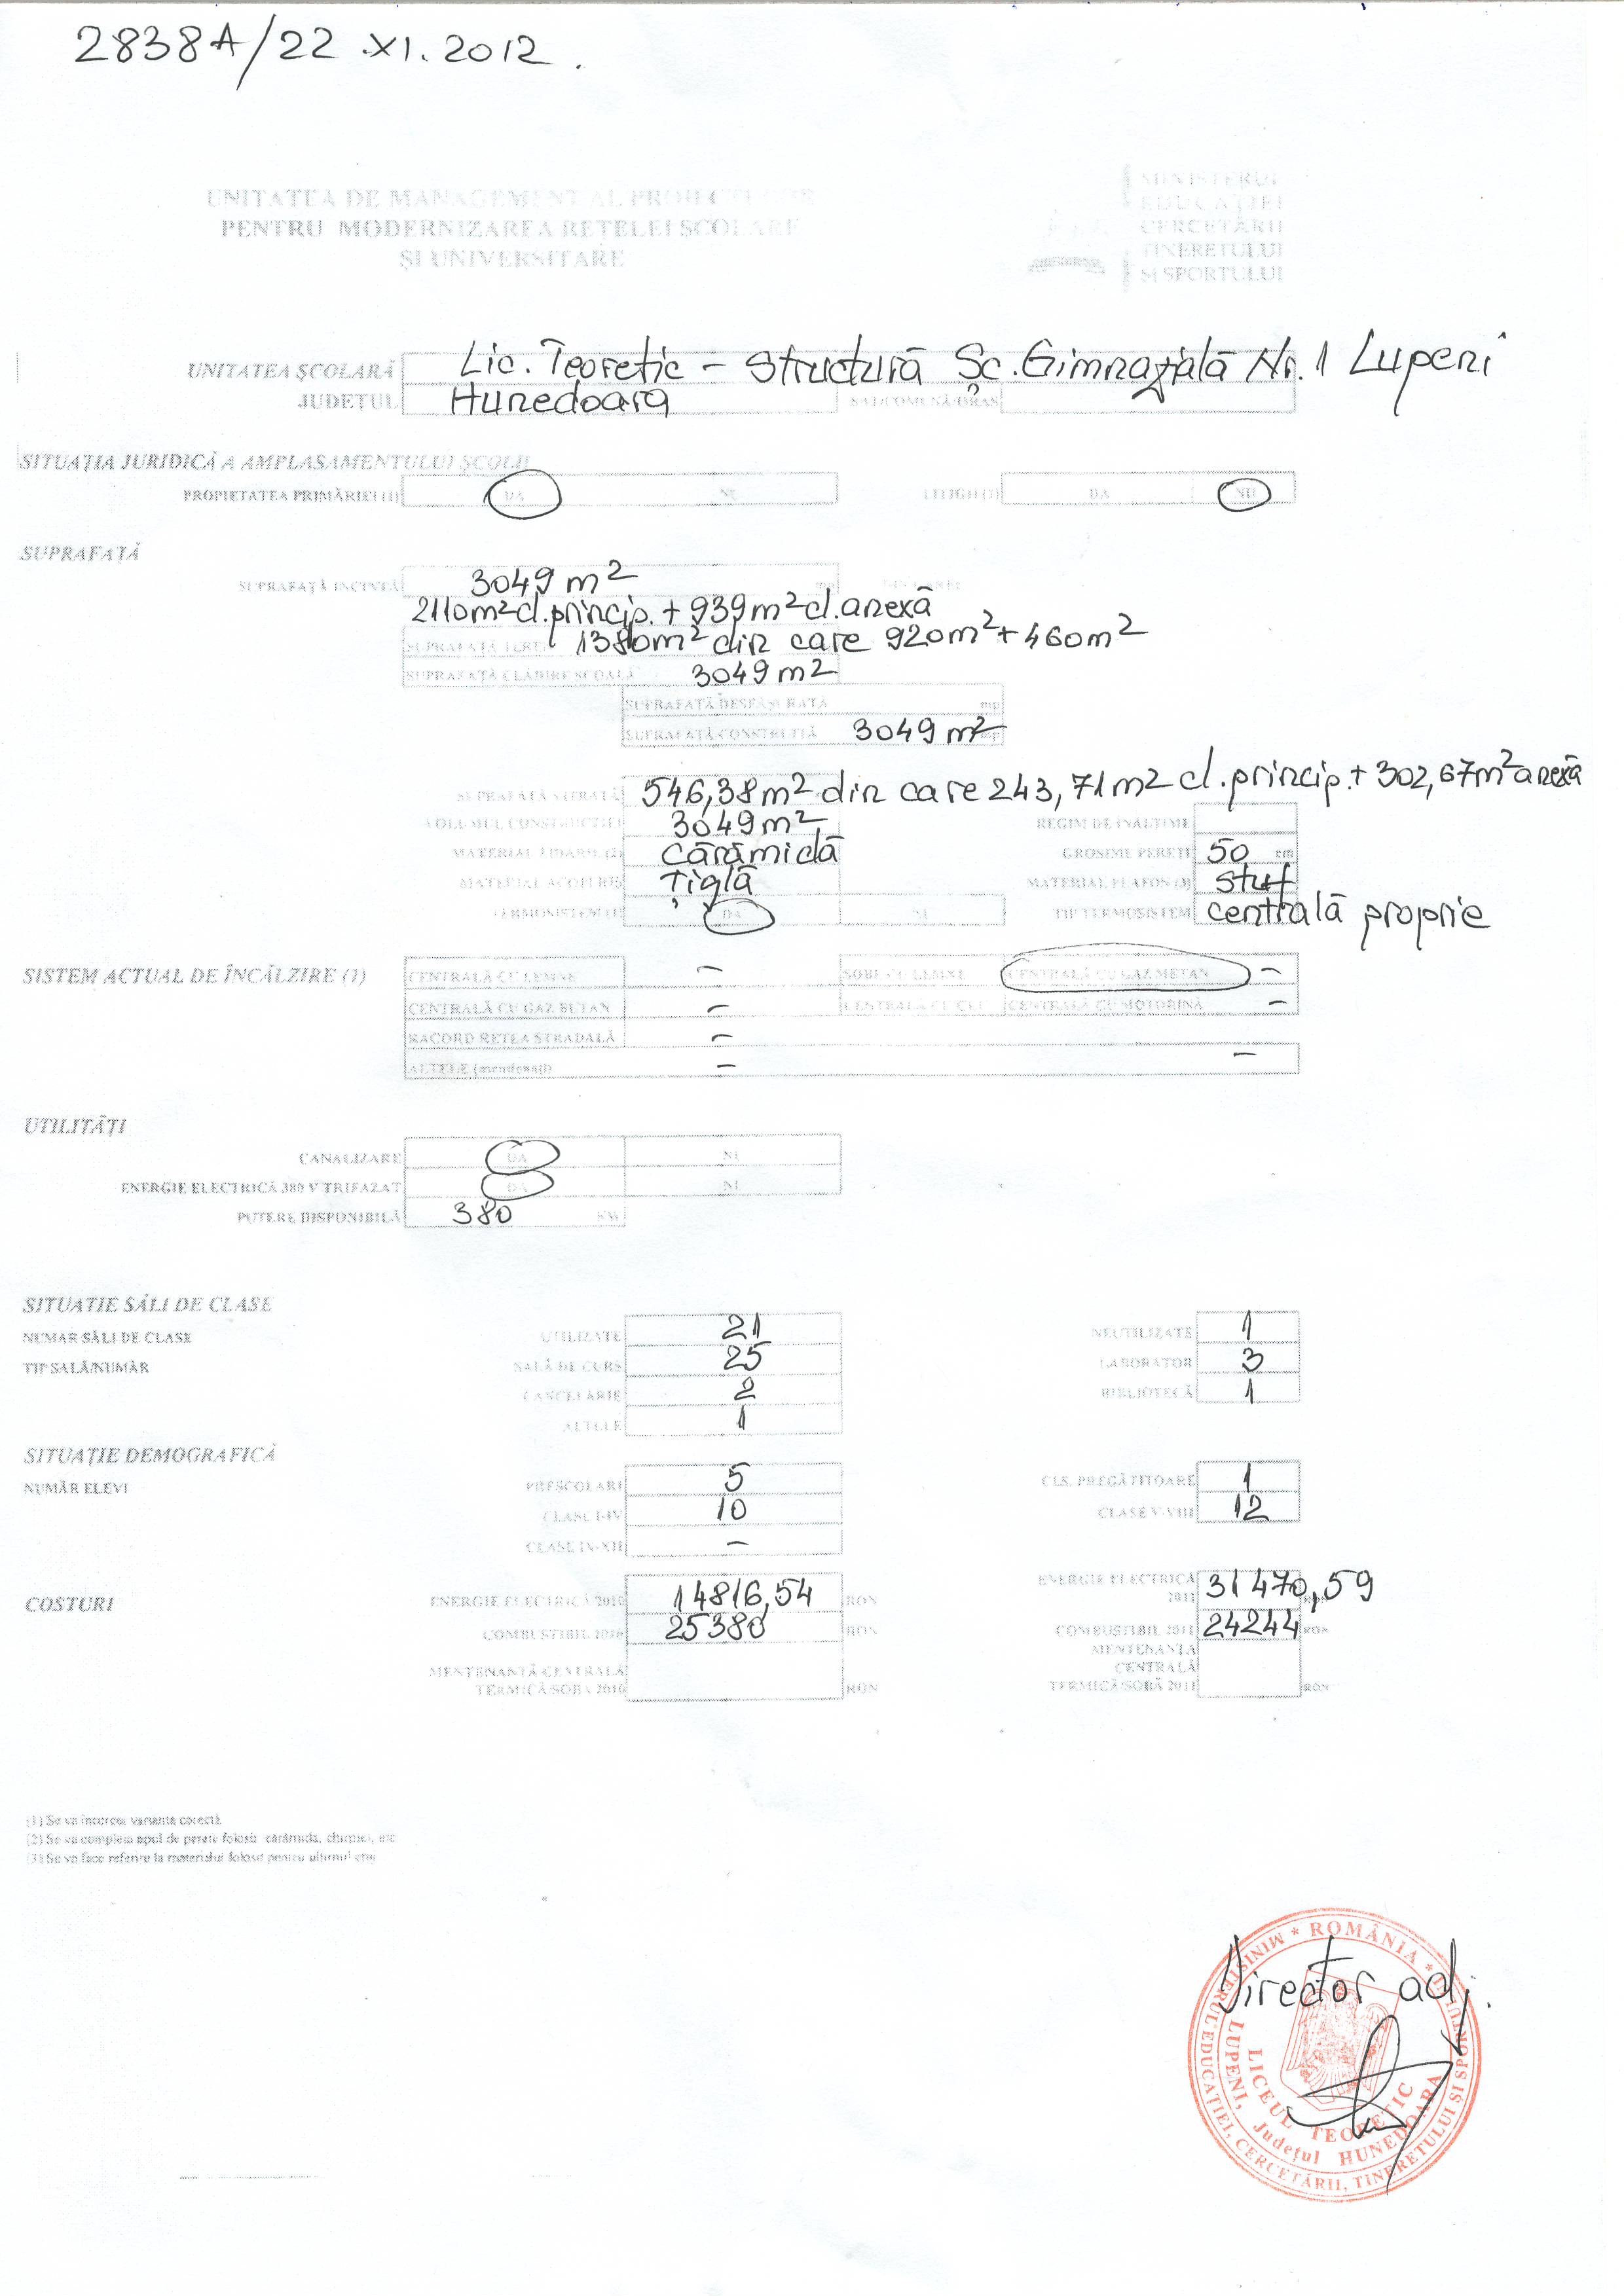 2838A/22.XI.2012.
UNITATEA DE MANAGEMENT AL PROIECTELOR
PENTRU MODERNIZAREA REȚELEI ȘCOLARE
ȘI UNIVERSITARE
MINISTERUL
EDUCAȚIEI
CERCETĂRII
TINERETULUI
ȘI SPORTULUI
UNITATEA ȘCOLARĂ Lic. Teoretic - Structură Șc. Gimnazială Nr. 1 Lupeni
JUDEȚUL Hunedoara SAT/COMUNĂ/ORAȘ
SITUAȚIA JURIDICĂ A AMPLASAMENTULUI ȘCOLII
PROPIETATEA PRIMĂRIEI (1) DA NU LITIGII (1) DA NU
SUPRAFAȚĂ
SUPRAFAȚĂ INCINTĂ 3049 m2 mp DIN CARE:
2110m2 cl. princip. + 939m2 cl. anexă
SUPRAFAȚĂ TEREN 1380m2 din care 920m2 + 460m2
SUPRAFAȚĂ CLĂDIRE ȘCOALĂ 3049 m2
SUPRAFAȚĂ DESFĂȘURATĂ mp
SUPRAFAȚĂ CONSTRUITĂ 3049 m2 mp
SUPRAFAȚĂ VITRATĂ 546,38m2 din care 243,71m2 cl. princip. + 302,67m2 anexă
VOLUMUL CONSTRUCȚIEI 3049 m2 REGIM DE ÎNĂLȚIME
MATERIAL ZIDĂRIE (2) Cărămidă GROSIME PEREȚI 50 cm
MATERIAL ACOPERIȘ Țiglă MATERIAL PLAFON (3) stuf
TERMOSISTEM (1) DA NU TIP TERMOSISTEM centrală proprie
SISTEM ACTUAL DE ÎNCĂLZIRE (1) CENTRALĂ CU LEMNE – SOBE CU LEMNE CENTRALĂ CU GAZ METAN –
CENTRALĂ CU GAZ BUTAN – CENTRALĂ CU CLU CENTRALĂ CU MOTORINĂ –
RACORD REȚEA STRADALĂ –
ALTELE (menționați) – –
UTILITĂȚI
CANALIZARE DA NU
ENERGIE ELECTRICĂ 380 V TRIFAZAT DA NU
PUTERE DISPONIBILĂ 380 KW
SITUATIE SĂLI DE CLASE
NUMAR SĂLI DE CLASE UTILIZATE 21 NEUTILIZATE 1
TIP SALĂ/NUMĂR SALĂ DE CURS 25 LABORATOR 3
CANCELARIE 2 BIBLIOTECĂ 1
ALTELE 1
SITUAȚIE DEMOGRAFICĂ
NUMĂR ELEVI PREȘCOLARI 5 CLS. PREGĂTITOARE 1
CLASE I-IV 10 CLASE V-VIII 12
CLASE IX-XII –
COSTURI ENERGIE ELECTRICĂ 2010 14816,54 RON ENERGIE ELECTRICĂ 2011 31470,59
COMBUSTIBIL 2010 25380 RON COMBUSTIBIL 2011 24244 RON
MENTENANȚĂ CENTRALĂ TERMICĂ/SOBĂ 2010 RON MENTENANȚA CENTRALĂ TERMICĂ/SOBĂ 2011 RON
(1) Se va încercui varianta corectă
(2) Se va completa tipul de perete folosit cărămida, chirpici, etc
(3) Se va face referire la materialul folosit pentru ultimul etaj
Director adj.
* ROMÂNIA * MINISTERUL EDUCAȚIEI, CERCETĂRII, TINERETULUI ȘI SPORTULUI
LICEUL TEORETIC
LUPENI, Județul HUNEDOARA